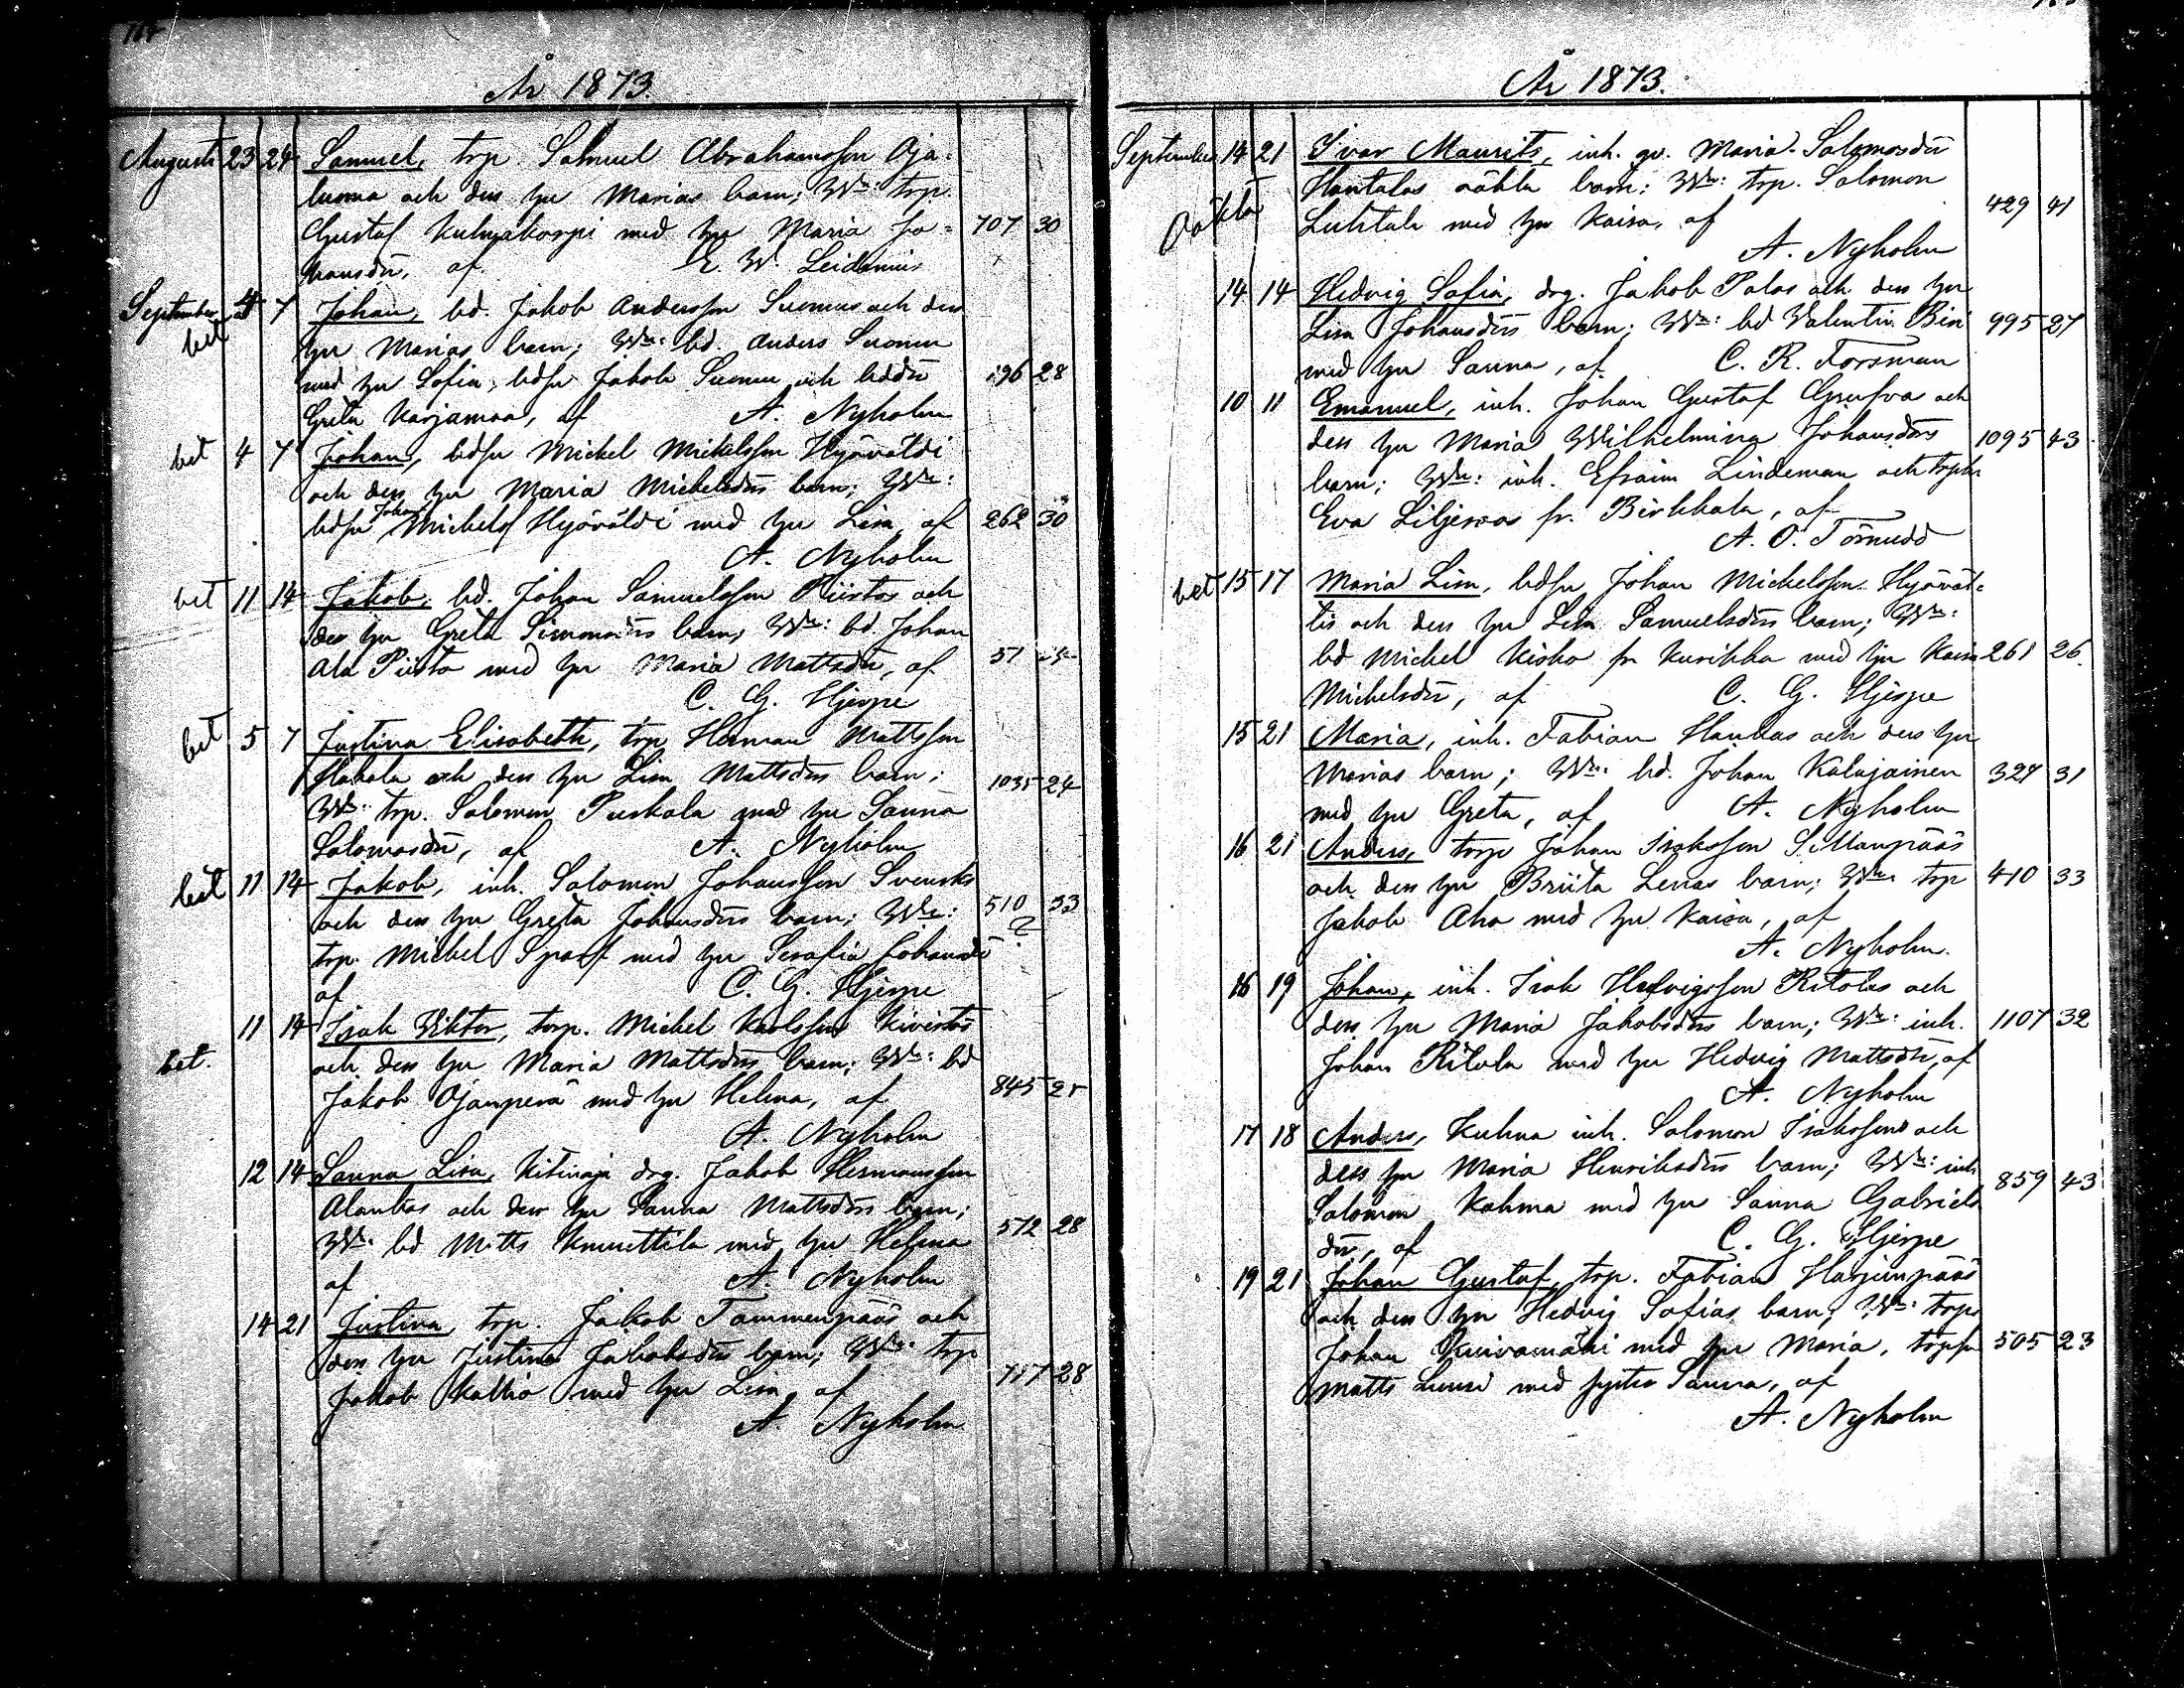 År 1873.
Augusti 23 24 Samuel, trp. Samuel Abrahamsson Oja-
luoma och dess hu Marias barn; Wn: trp.
Gustaf Kulmakorpi med hu Maria Jo- 707 30
hansdr, af E. W. Leidenius
September 4 7 Johan, bd. Jakob Andersson Suomus och dess
bet
hu Marias barn; Wn: bd. Anders Suomu
med hu Sofia, bdsn Jakob Suomu och bddr 196 28
Greta Karjamaa, af A. Nyholm
bet 4 7 Johan, bdsn Michel Michelsson Hyöväldi
och dess hu Maria Michelsdrs barn; Wn:
bdsn Johan Michels Hyöväldi med hu Lisa, af 262 30
A. Nyholm
bet 11 14 Jakob, bd. Johan Samuelsson Piistos och
dess hu Greta Simonsdrs barn, Wn: bd. Johan
Ala Piisto med hu Maria Mattsdr, af 51
C. G. Hjerpe
bet 5 7 Justina Elisabeth, trp Herman Mattsson
Hakola och dess hu Lisa Mattsdrs barn;
Wn: trp. Salomon Puskala med hu Sanna 1035 24
Salomosdr, af A. Nyholm
bet 11 14 Jakob, inh. Salomon Johansson Svensks
och dess hu Greta Johansdrs barn; Wn: 510 33
?
trp. Michel Sparf med hu Serafia Johansdr
af C. G. Hjerpe
11 14 Isak Viktor, torp. Michel Karlsson Kivistös
bet. och dess hu Maria Mattsdrs barn; Wn: bd
Jakob Ojanperä med hu Helena, af 845 25
A. Nyholm
12 14 Sanna Lisa, Kitinoja drg. Jakob Hermansson
Alantas och dess hu Sanna Mattsdrs barn;
Wn: bd Matts Knuuttila med hu Helena 512 28
af A. Nyholm
14 21 Justina, trp. Jakob Tammenpääs och
dess hu Justina Jakobsdrs barn; Wn: trp
Jakob Kallio med hu Lisa, af 28
A. Nyholm
År 1873.
September 14 21 Ivar Maurits, inh. qv. Maria Salomosdr
Hantalas oäkta barn: Wn: trp. Salomon
Oäkta Luhtala med hu Kaisa, af 429 41
A. Nyholm
14 14 Hedvig Sofia, drg. Jakob Palos och dess hu
Lisa Johansdrs barn; Wn: bd Valentin Bini 995 27
med hu Sanna, af C. R. Forsman
10 11 Emanuel, inh. Johan Gustaf Grufva och
dess hu Maria Wilhelmina Johansdrs 1095 43
barn; Wn: inh. Efraim Lindeman och trph
Eva Liljeroos fr. Birkkala, af
A. O. Törnudd
bet 15 17 Maria Lisa, bdsn Johan Michelsson Hyöväl-
tis och dess hu Lisa Samuelsdrs barn; Wn:
bd Michel Kisko fr Kurikka med hu Kaisa 261 26
Michelsdr, af C. G. Hjerpe
15 21 Maria, inh. Fabian Hautas och dess hu
Marias barn; Wn: bd. Johan Kalajainen 324 31
med hu Greta, af A. Nyholm
16 21 Anders, torp Johan Isaksson Sillanpääs
och dess hu Briita Lenas barn; Wn: trp 410 33
Jakob Aho med hu Kaisa, af
A. Nyholm.
16 19 Johan, inh. Isak Hedvigsson Ritolas och
dess hu Maria Jakobsdrs barn; Wn: inh. 1107 32
Johan Ritola med hu Hedvig Mattsdr, af
A. Nyholm
17 18 Anders, Kuhna inh. Salomon Isaksson och
dess hu Maria Henriksdrs barn; Wn: inh
Salomon Kahma med hu Sanna Gabriels 859 43
dr, af C. G. Hjerpe
19 21 Johan Gustaf, trp. Fabian Harjunpääs
och dess hu Hedvig Sofias barn; Wn: trp
Johan Kuivamäki med hu Maria, trpsn 505 23
Matts Luusi med syster Sanna, af
A. Nyholm